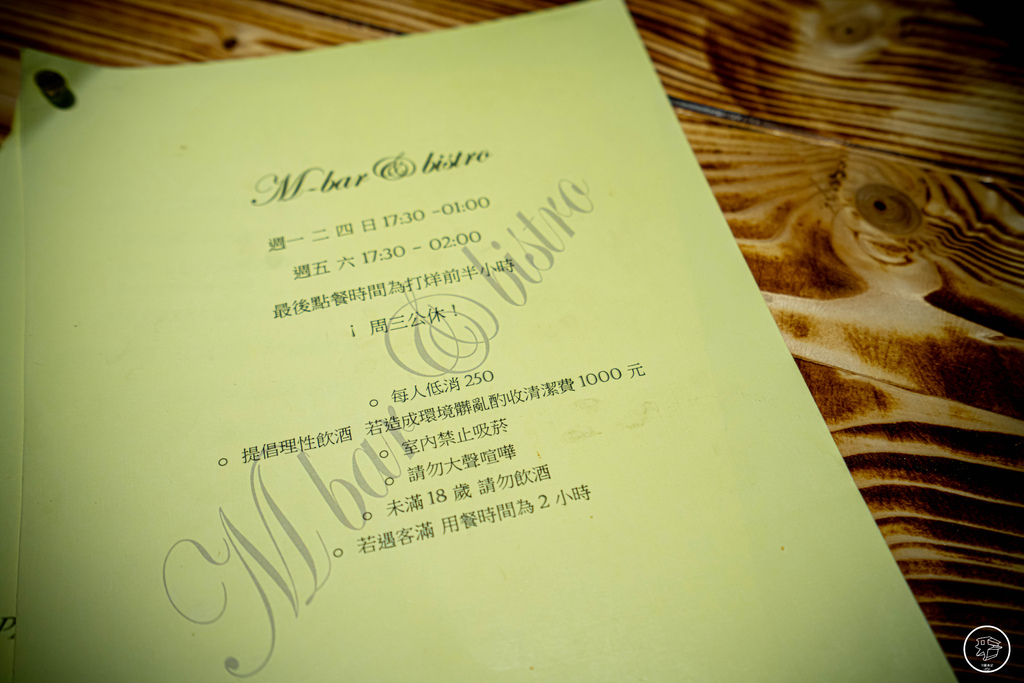 M-bar & bistro
週一 二 四 日 17:30 -01:00
週五 六 17:30 - 02:00
最後點餐時間為打烊前半小時
¡ 周三公休！
○ 每人低消 250
○ 提倡理性飲酒 若造成環境髒亂酌收清潔費 1000 元
○ 室內禁止吸菸
○ 請勿大聲喧嘩
○ 未滿 18 歲 請勿飲酒
○ 若遇客滿 用餐時間為 2 小時
M bar & bistro